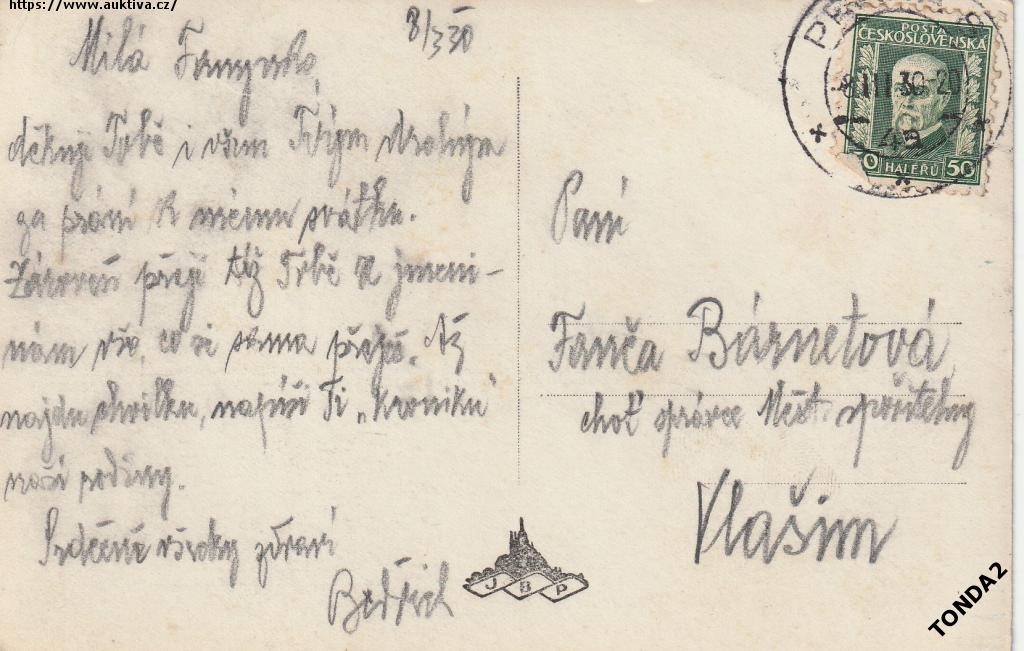 https://www.auktiva.cz/
8/3 30
Milá
děkuji Tobě i všem Tvým drahým
za přání k mému svátku.
Zároveň přeji též Tobě k jmeni-
nám vše, co si sama přeješ. Až
najdu chvilku, napíši Ti „Kroniku"
naší rodiny.
Srdečně všecky zdraví
Bedřich
POSTA
ČESKOSLOVENSKÁ
8.III.30-20
4a
HALÉŘŮ 50
Paní
Fanča Bárnetová
choť správce Měst. spořitelny
Vlašim
JBP
TONDA2